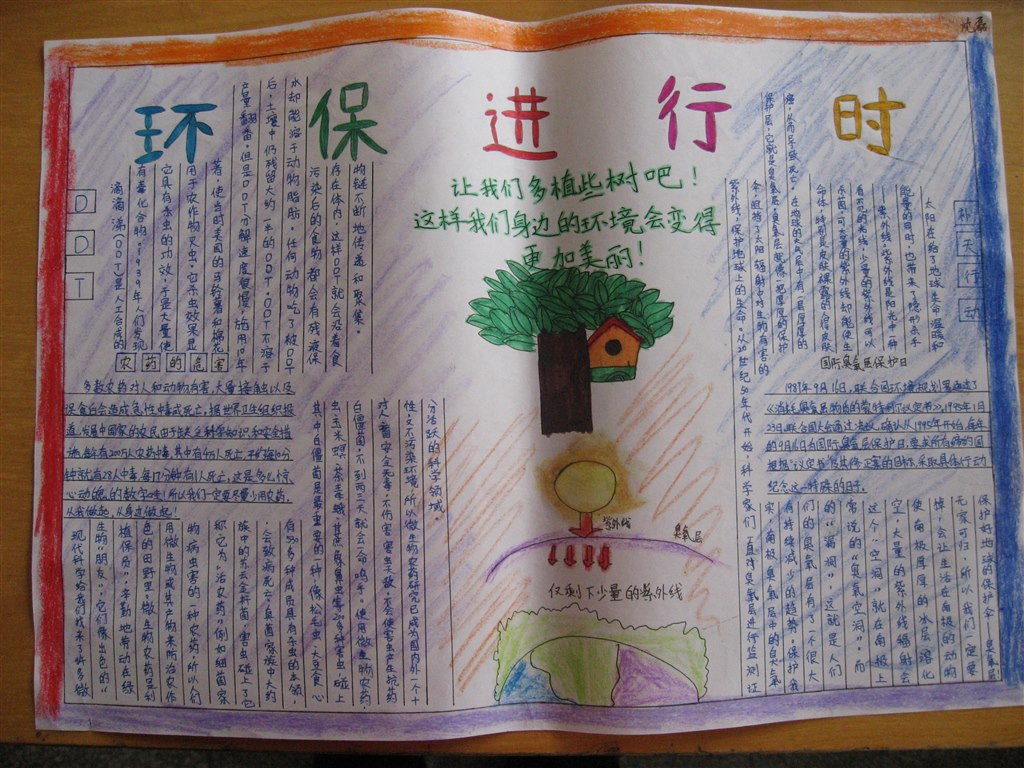 环保进行时
让我们多植些树吧！
这样我们身边的环境会变得
更加美丽！
DDT
滴滴滴(DDT)是人工合成的
有毒化合物。1939年人们发现
它具有杀虫的功效，于是大量使
用于农作物灭虫，它杀虫效果显
著，使当时美国的马铃薯和棉花
产量翻番。但是DDT分解速度很慢，施用10年
后，土壤中仍残留大约一半的DDT。DDT不溶于
水却能溶于动物脂肪，任何动物吃了被DDT
污染后的食物都会有残液保
存在体内，这样DDT就会沿着食
物链不断地传递和聚集。
农药的危害
多数农药对人和动物有害，大量接触以及
误食会造成急性中毒或死亡，据世界卫生组织报
道，发展中国家的农民由于缺乏科学知识和安全措
施，每年有200万人农药中毒，其中有4万人死亡，平均每10分
钟就有28人中毒，每17分钟有1人死亡，这是多么惊
心动魄的数字哇！所以我们一定要尽量少用农药，
从我做起，从身边做起！
现代科学给我们找来了许多微
生物“朋友”，它们像出色的“
植保员”，辛勤地劳动在绿
色的田野里，微生物农药是利
用微生物或其产物来防治农作
物病虫害的一种农药，所以人们
称它为“活农药”例如细菌家
族中的苏云金杆菌，害虫碰上了它
，会致病死亡，真菌家族中大约
有530多种成员具有杀虫的本领，
其中白僵菌是最重要的一种，像松毛虫、大豆食心
虫、玉米螟
白僵菌，不到两三天就会一命呜乎，使用微生物农药，
对人畜安全无毒，不伤害害虫天敌，不会使害虫产生抗药
性，又不污染环境，所以微生物农药研究已成为国内外一个十
分活跃的科学领域。
紫外线
臭氧层
仅剩下少量的紫外线
补天行动
太阳在给了地球生命温暖和
能量的同时，也带来了隐形杀手
——紫外线，紫外线是阳光中一种
看不见的光线，少量的紫外线可以
杀菌，可大量的紫外线却能使生
命体，特别是皮肤裸露的人得皮肤
癌，从而导致死亡，在地球的大气层中有一层厚厚的
保护层，它就是臭氧层，臭氧层就像一把厚厚的保护
伞，阻挡了太阳辐射中对生物有害的
紫外线，保护地球上的生命。从20世纪50年代开始，科学家们
国际臭氧层保护日
1987年9月16日，联合国环境规划署通过了
《消耗臭氧层物质的蒙特利尔议定书》，1995年1月
23日，联合国大会通过决议，确认从1995年开始，每年
的9月16日为国际臭氧层保护日，要求所有缔约国
根据“议定书”及其修正案的目标，采取具体行动
纪念这一特殊的日子。
一直对臭氧层进行监测证
实，南极臭氧层中的臭氧
有持续减少的趋势，保护我
们的臭氧层有了一个很大
的“漏洞”，这就是人们
常说的“臭氧空洞”，而
这个“空洞”就在南极上
空，大量的紫外线辐射会
使南极厚厚的冰层溶化
掉，会让生活在南极的动物
无家可归，所以我们一定要
保护好地球的保护伞——臭氧层